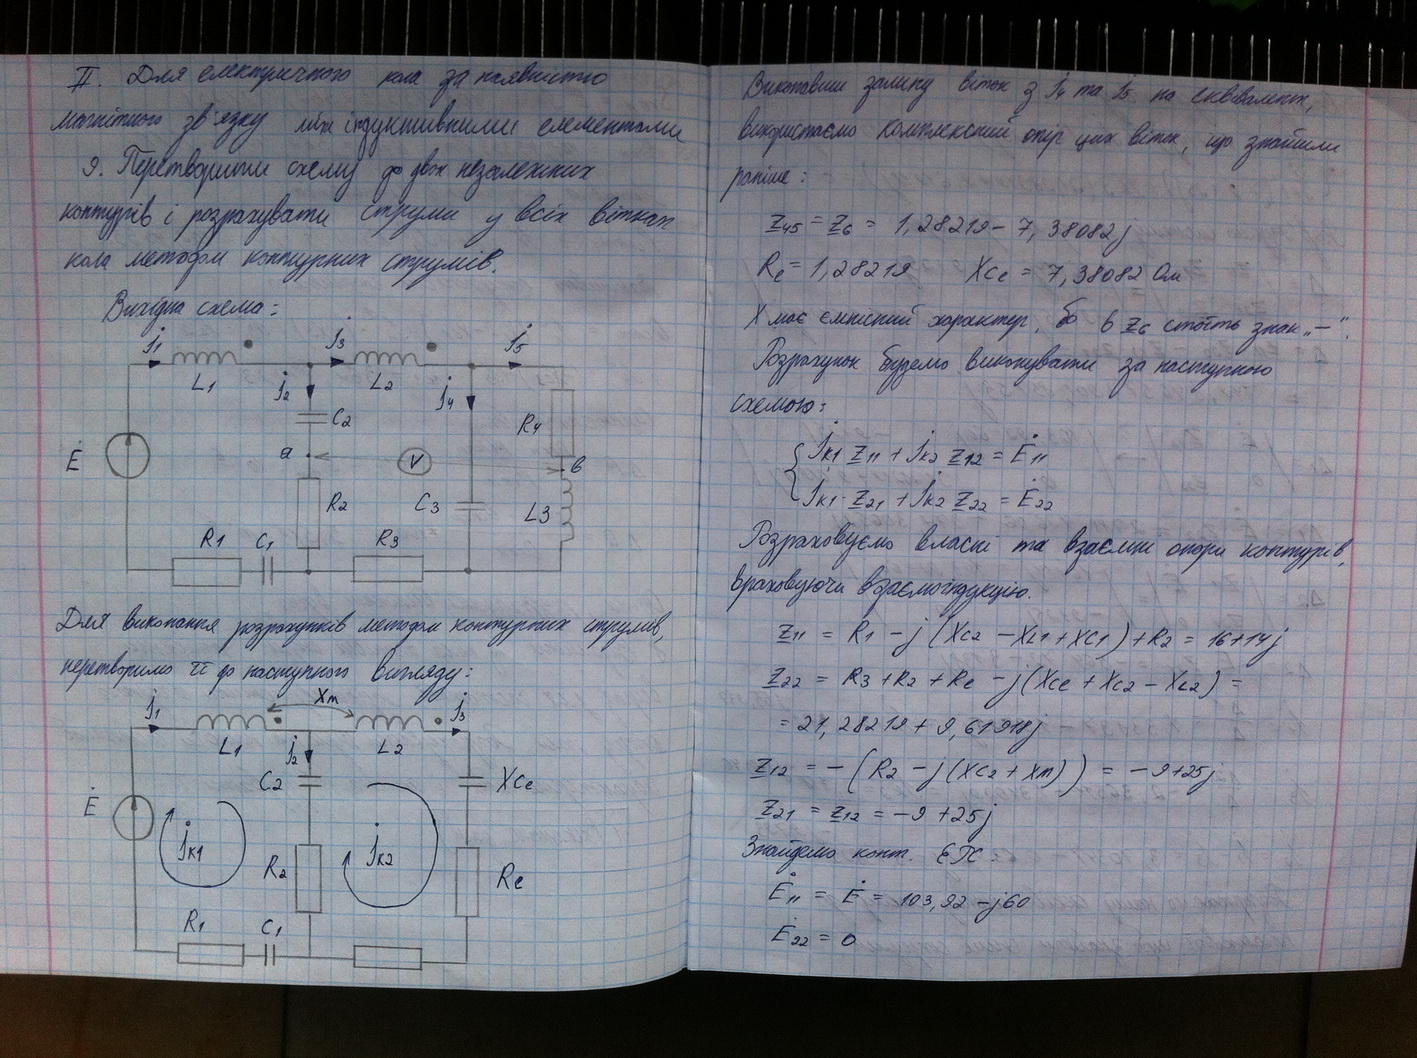 II. Для електричного кола за наявністю
магнітного зв'язку між індуктивними елементами
9. Перетворити схему до двох незалежних
контурів і розрахувати струми у всіх вітках
кола методом контурних струмів.
Вихідна схема:
İ1 L1 İ3 L2 İ5
İ2 İ4
C2 R4
Ė a V в
R2 C3 L3
R1 C1 R3
Для виконання розрахунків методом контурних струмів,
перетворимо її до наступного вигляду:
Xm
İ1 İ3
L1 İ2 L2
C2 XCe
Ė
İк1 İк2
R2 Re
R1 C1
Виконавши заміну віток з İ4 та İ5 на еквівалент,
використаємо комплексний опір цих віток, що знайшли
раніше:
Z45 = Z6 = 1,28219 - 7,38082j
Re = 1,28219 XCe = 7,38082 Ом
X має ємнісний характер, бо в Z6 стоїть знак „-“.
Розрахунок будемо виконувати за наступною
схемою:
İк1 Z11 + İк2 Z12 = Ė11
İк1 · Z21 + İк2 Z22 = Ė22
Розраховуємо власні та взаємні опори контурів,
враховуючи взаємоіндукцію.
Z11 = R1 - j (XC2 - XL1 + XC1) + R2 = 16+14j
Z22 = R3 + R2 + Re - j(XCe + XC2 - XL2) =
= 21,28219 + 9,61918j
Z12 = - (R2 - j (XC2 + Xm)) = -9+25j
Z21 = Z12 = -9+25j
Знайдемо конт. ЕРС:
Ė11 = Ė = 103,92 - j60
Ė22 = 0